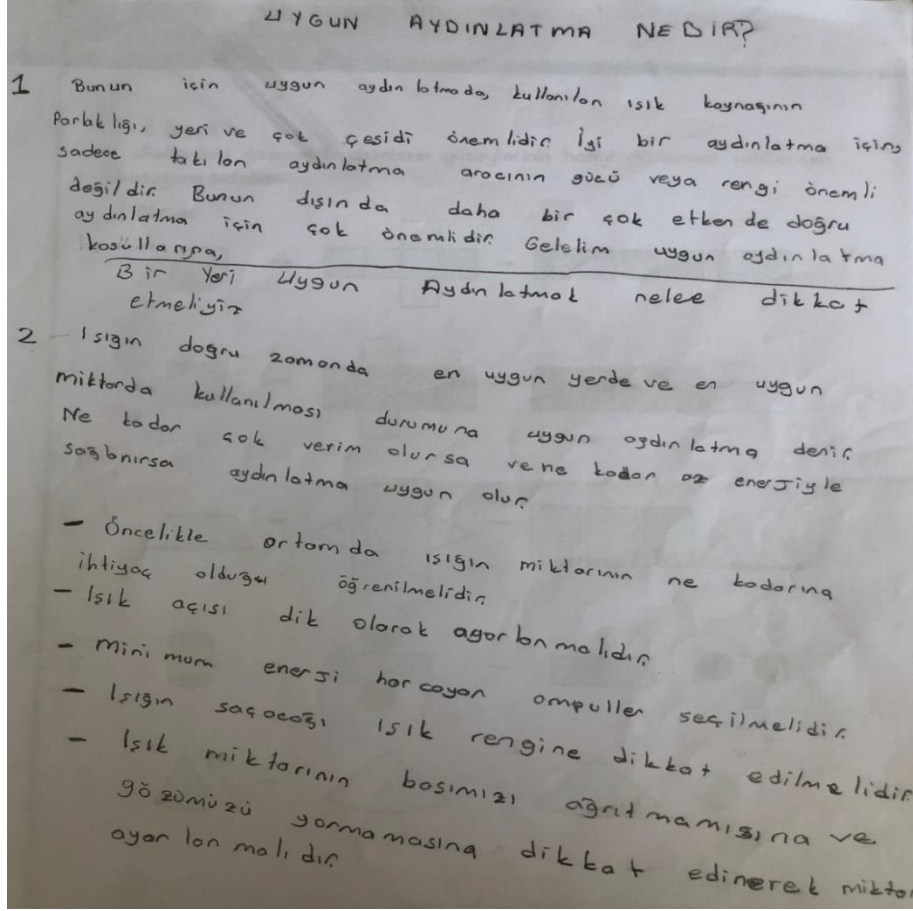 UYGUN AYDINLATMA NEDİR?
1 Bunun için uygun aydınlatmada, kullanılan ışık kaynağının
Parlaklığı, yeri ve çok çeşidi önemlidir. İyi bir aydınlatma için,
sadece takılan aydınlatma aracının gücü veya rengi önemli
değildir. Bunun dışında daha bir çok etken de doğru
aydınlatma için çok önemlidir. Gelelim uygun aydınlatma
koşullarına,
Bir Yeri Uygun Aydınlatmak nelee dikkat
etmeliyiz
2 - Işığın doğru zamanda en uygun yerde ve en uygun
miktarda kullanılması durumuna uygun aydınlatma denir.
Ne kadar çok verim olursa ve ne kadar az enerjiyle
sağlanırsa aydınlatma uygun olur.
- Öncelikle ortamda ışığın miktarının ne kadarına
ihtiyaç olduğu öğrenilmelidir.
- Işık açısı dik olarak agarlanmalıdır.
- Minimum enerji harcayan ampuller seçilmelidir.
- Işığın saçacağı ışık rengine dikkat edilmelidir.
- Işık miktarının başımızı ağrıtmamısına ve
gözümüzü yormamasına dikkat edinerek miktar
ayarlanmalıdır.